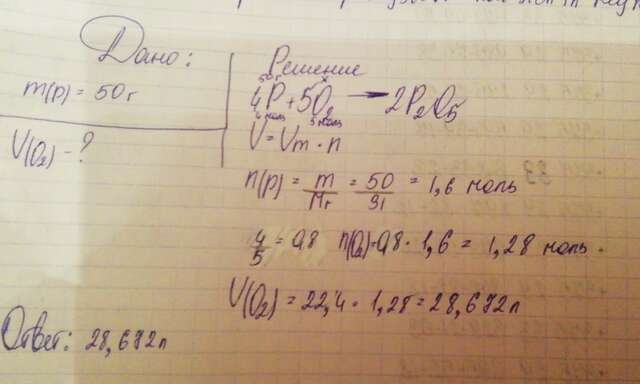 Дано:
m(p) = 50г
V(O₂) - ?
Решение
50г x
4P + 5O₂ → 2P₂O5
4 моль 5 моль
V = Vm · n
n(p) = m/Mr = 50/31 = 1,6 моль
4/5 = 0,8 n(O₂)=0,8 · 1,6 = 1,28 моль.
V(O₂) = 22,4 · 1,28 = 28,672л
Ответ: 28,672л